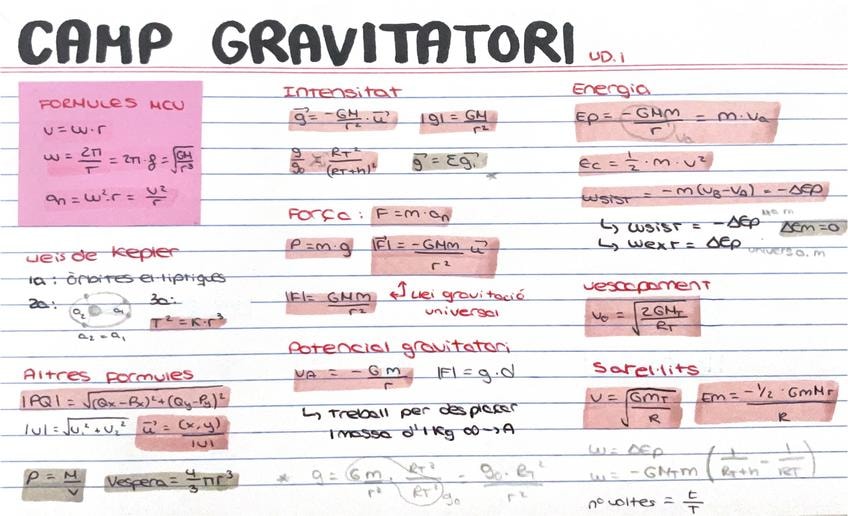 CAMP GRAVITATORI UD.1
FORMULES MCU
v = ω·r
ω = 2π/T = 2π·f = √(GM/r³)
an = ω²·r = v²/r
lleis de Kepler
1a: òrbites el·líptiques
2a:
a₂ a₁
a₂ = a₁
3a:
T² = K·r³
Altres formules
|PQ| = √((Qx-Px)²+(Qy-Py)²)
|v| = √(v₁²+v₂²) u⃗ = (x,y)/|v|
ρ = M/V Vesfera = 4/3 πr³
Intensitat
g⃗ = -GM/r² · u⃗ |g| = GM/r²
g/g₀ = RT²/(RT+h)² g⃗ = Σg⃗i *
Força: F = m·an
P = m·g |F| = -GMm/r² u⃗
|F| = GMm/r² ↲↑ llei gravitació
universal
Potencial gravitatori
VA = -G m/r |F| = g·d
↳ treball per desplaçar
1 massa d'1Kg ∞→A
* g = Gm/r² · RT²/RT² g₀ = g₀·RT²/r²
Energia
Ep = -GMm/r = m·Va
Va
Ec = 1/2·m·v²
Wsist = -m(VB-VA) = -ΔEp
↳ Wsist = -ΔEp ΔEm=0
↳ Wext = ΔEp
universo.m
Vescapament
v₀ = √(2GMT/RT)
Satèl·lits
v = √(GMT/R) Em = -1/2·GmMT/R
W = ΔEp
W = -GMTm (1/(RT+h) - 1/RT)
nº voltes = t/T